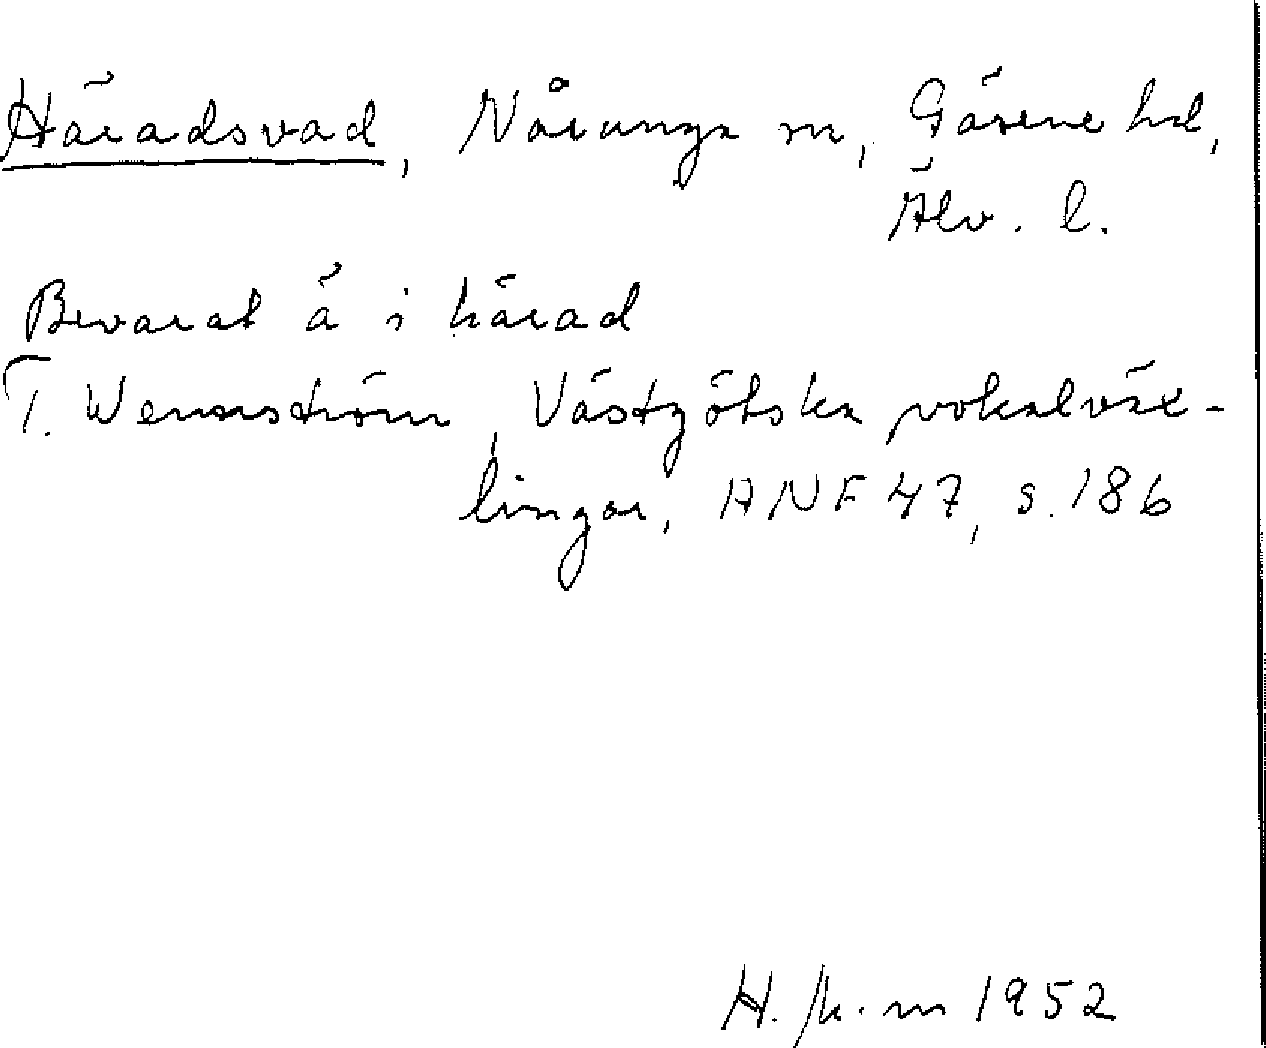 Häradsvad, Nårunga sn, Gäsene hd,
Älv. l.
Bevarat ä i härad
T. Wennström, Västgötska vokalväx-
lingar, ANF 47, s. 186
1952